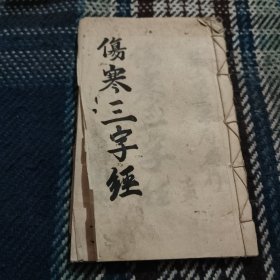 傷寒三字經